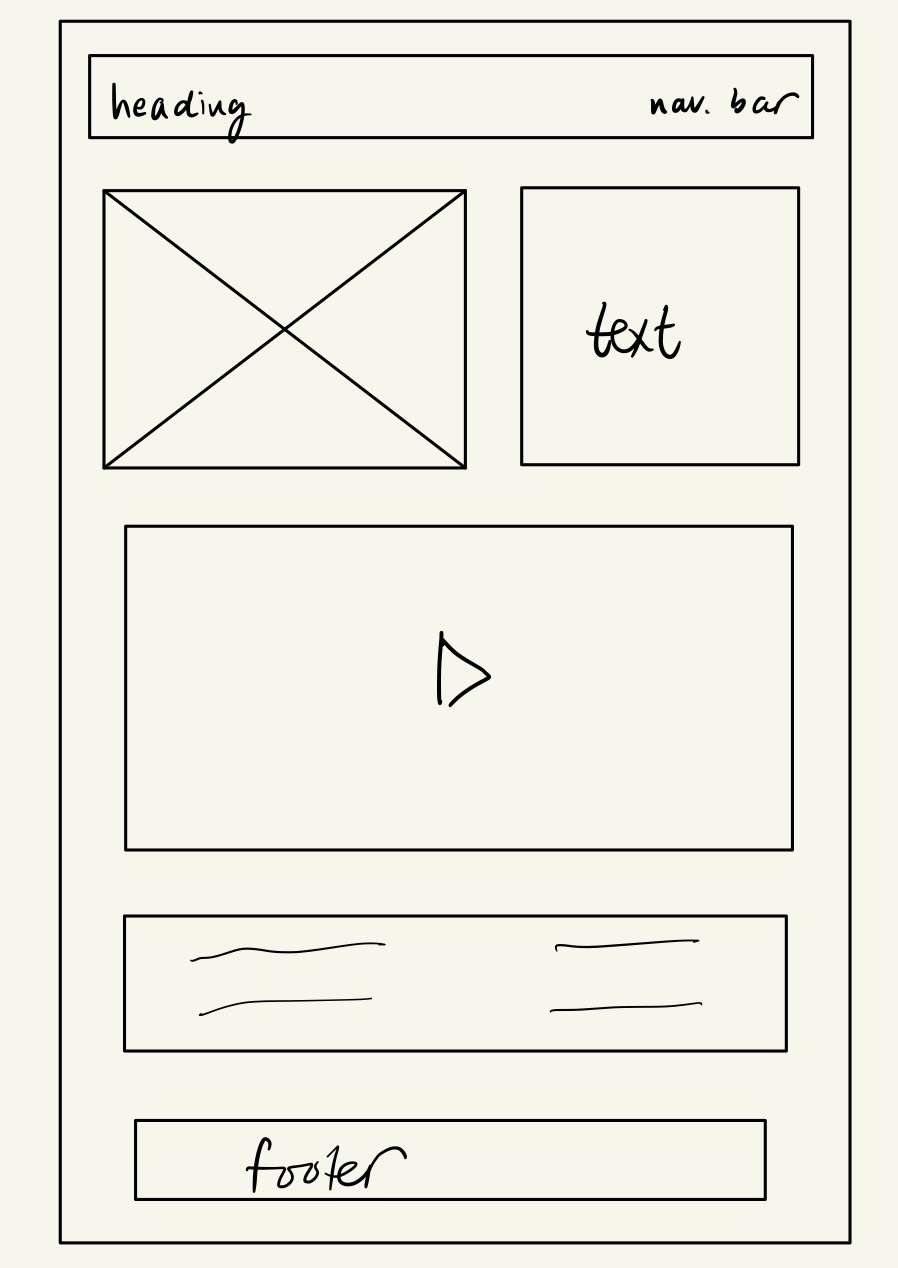 heading nav. bar
text
footer